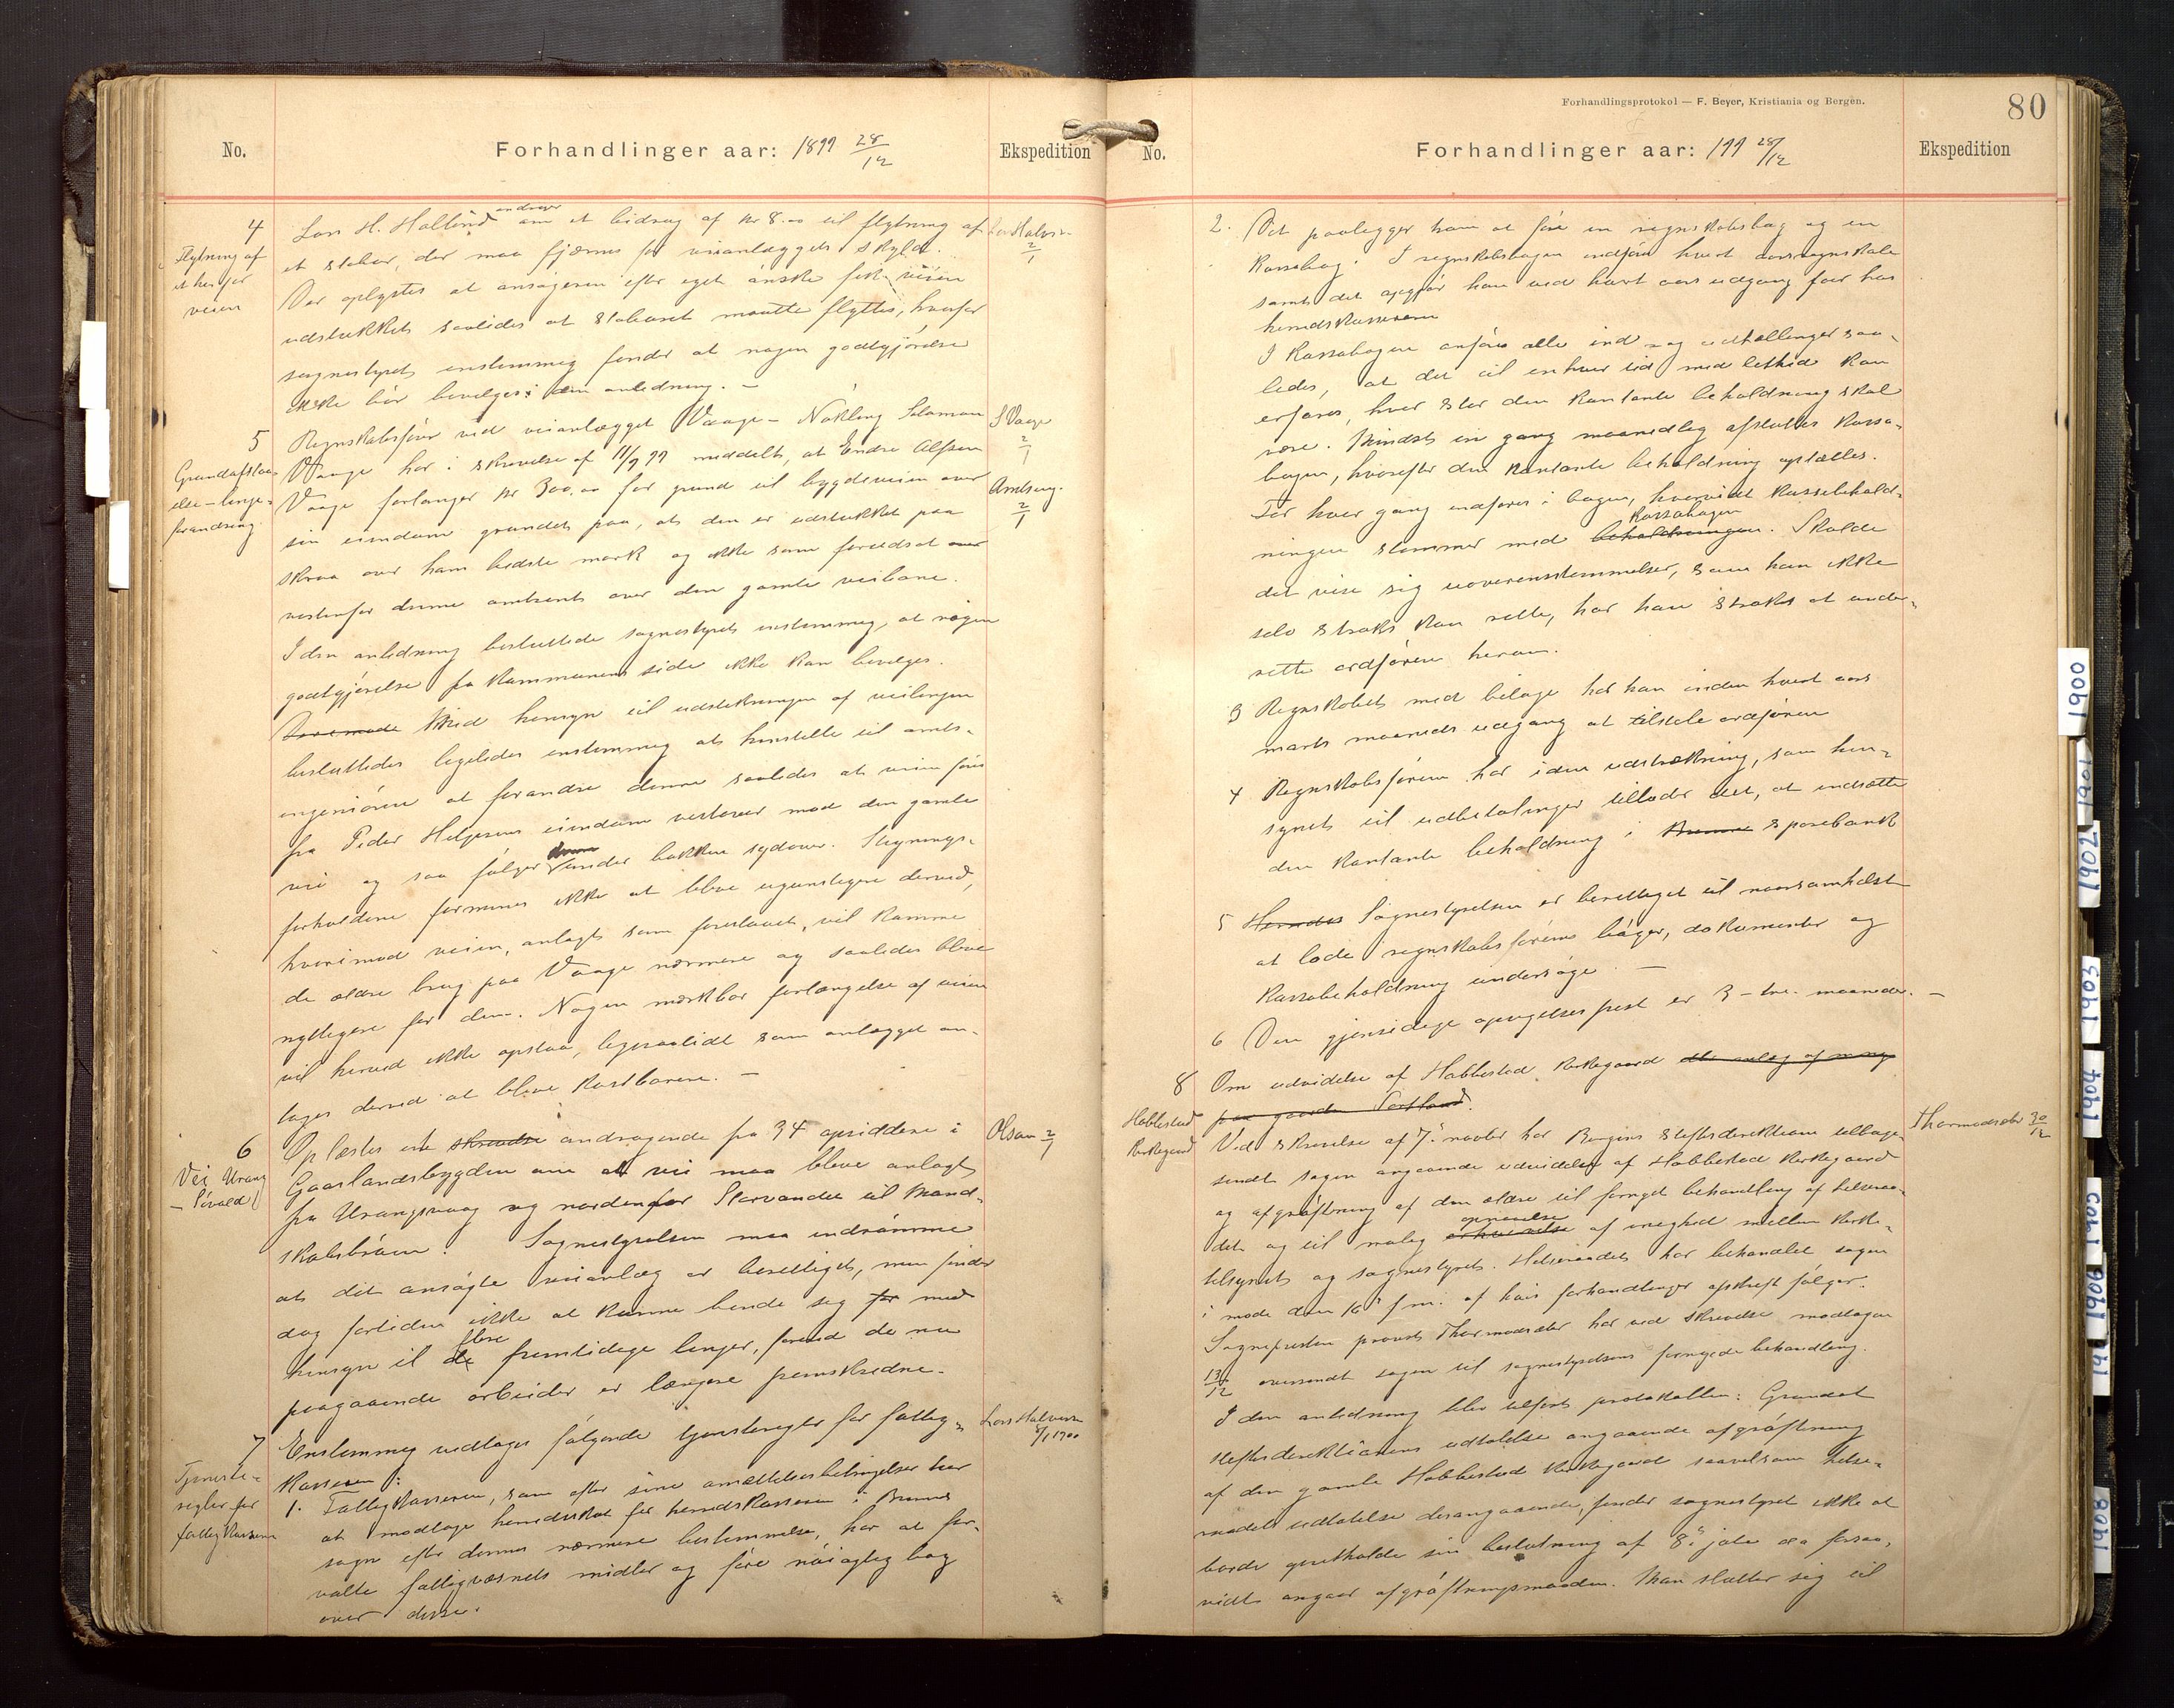 No.
Forhandlinger aar: 1899 28/12
Ekspedition
4
Flytning af
et hus for
veien
Lars H. Holland andrager om et bidrag af kr 8.00 til flytning af
et stabur, der maa fjærnes for veianlæggets skyld.
Der oplystes at ansøgeren efter eget ønske fik veien
udstukket saaledes at staburet maatte flyttes, hvorfor
sognestyret enstemmig fandt at nogen godtgjørelse
ikke bør bevilges i den anledning. –
5
Grundafstaaelse – linje-
forandring
S Vaage 2/1
Amtsing. 2/1
Regnskabsfører ved veianlægget Vaage – Nøkling Salamon
Vaage har i skrivelse af 11/9 99 meddelt, at Endre Alfsen
Vaage forlanger kr 300.00 for grund til bygdeveien over
sin eiendom grundet paa, at den er udstukket paa
skraa over hans bedste mark og ikke som forudsat over
vestenfor denne omtrent over den gamle veibane.
I den anledning besluttede sognestyret enstemmig, at nogen
godtgjørelse fra kommunens side ikke kan bevilges.
Med hensyn til udstikningen af veilinjen
besluttedes ligeledes enstemmig at henstille til amts-
ingeniøren at forandre denne saaledes at veien føres
fra Peder Helgesens eiendom vestover mod den gamle
vei og saa følger under bakken sydover. Stignings-
forholdene formenes ikke at blive ugunstigere derved,
hvorimod veien, anlagt som foreslaaet, vil komme
de ældre brug paa Vaage nærmere og saaledes blive
nyttigere for dem. Nogen mærkbar forlængelse af veien
vil herved ikke opstaa, ligesaalidt som anlægget an-
tages derved at blive kostbarere. –
6
Vei Urang
– Sivald
Olsen 2/1
Oplæstes et skrivelse andragende fra 34 opsiddere i
Gaaslandsbygden om at vei maa blive anlagt
fra Urangsvaag og nordenfor Storvandet til Mand-
skabsbraaen. Sognestyrelsen maa indrømme
at det ansøgte veianlæg er berettiget, men finder
dog fortiden ikke at kunne binde sig for med
hensyn til de flere fremtidige linjer, forend de nu
paagaaende arbeider er længere fremskredne.
7
Tjeneste-
regler for
fattigkasseren
Lars Halvorsen
8/1 1900
Enstemmig vedtoges følgende tjensteregler for fattig-
kasseren:
1. Fattigkasseren, som efter sine ansættelsesbetingelser har
at modtage herredsskat for herredskasseren i Bremnes
sogn efter dennes nærmere bestemmelse, har at for-
valte fattigvæsnets midler og føre nøiagtig bog
over disse.
Forhandlingsprotokol — F. Beyer, Kristiania og Bergen.
80
No.
Forhandlinger aar: 199 28/12
Ekspedition
2. Det paalegges ham at føre en regnskabsbog og en
kassabog. I regnskabsbogen indføres hvert aars regnskab
samt det opgjør han ved hvert aars udgang faar hos
herredskassereren
I kassabogen anføres alle ind- og udtællinger saa-
ledes, at det til enhver tid med lethed kan
erfares, hvor stor den kontante beholdning skal
være. Mindst en gang maanedlig afsluttes kassa-
bogen, hvorefter den kontante beholdning optælles.
For hver gang indføres i bogen, hvorvidt kassebehold-
ningen stemmer med beholdningen kassabogen. Skulde
det vise sig uoverensstemmelser, som han ikke
selv straks kan rette, har han straks at under-
rette ordføreren herom.
3 Regnskabet med bilage har han inden hvert aars
marts maaneds udgang at tilstille ordføreren
4 Regnskabsføreren har i den udstrækning, som hen-
synet til udbetalinger tillader det, at indsætte
den kontante beholdning i Bremnes sparebank
5 Herreds Sognestyrelsen er berettiget til naarsomhelst
at lade regnskabsførerens bøger, dokumenter og
kassabeholdning undersøge. –
6 Den gjensidige opsigelsesfrist er 3 – tre maaneder. –
8
Habbestad
Kirkegaard
Thormodsæter 30/12
Om udvidelse af Habbestad kirkegaard
paa gaarden
Ved skrivelse af 7de novbr har Bergens stiftsdirektion tilbage-
sendt sagen angaaende udvidelse af Habbestad kirkegaard
og afgrøftning af den ældre til fornyet behandling af helseraa-
det og til mulig opnaaelse af enighed mellem kirke-
tilsynet og sognestyret. Helseraadet har behandlet sagen
i møde den 16de f.m. af hvis forhandlinger afskrift følger.
Sognepresten provst Thormodsæter har ved skrivelse modtagen
13/12 oversendt sagen til sognestyrelsens fornyede behandling.
I den anledning blev tilført protokollen: Grundet
stiftsdirektionens udtalelse angaaende afgrøftning
af den gamle Habbestad kirkegaard saavelsom helse-
raadets udtalelse desangaaende, finder sognestyret ikke at
burde opretholde sin beslutning af 8de juli d.a. forsaa-
vidt angaar afgrøftningsmaaden. Man slutter sig til
1900
1901
1902
1903
1904
1905
1906
1908